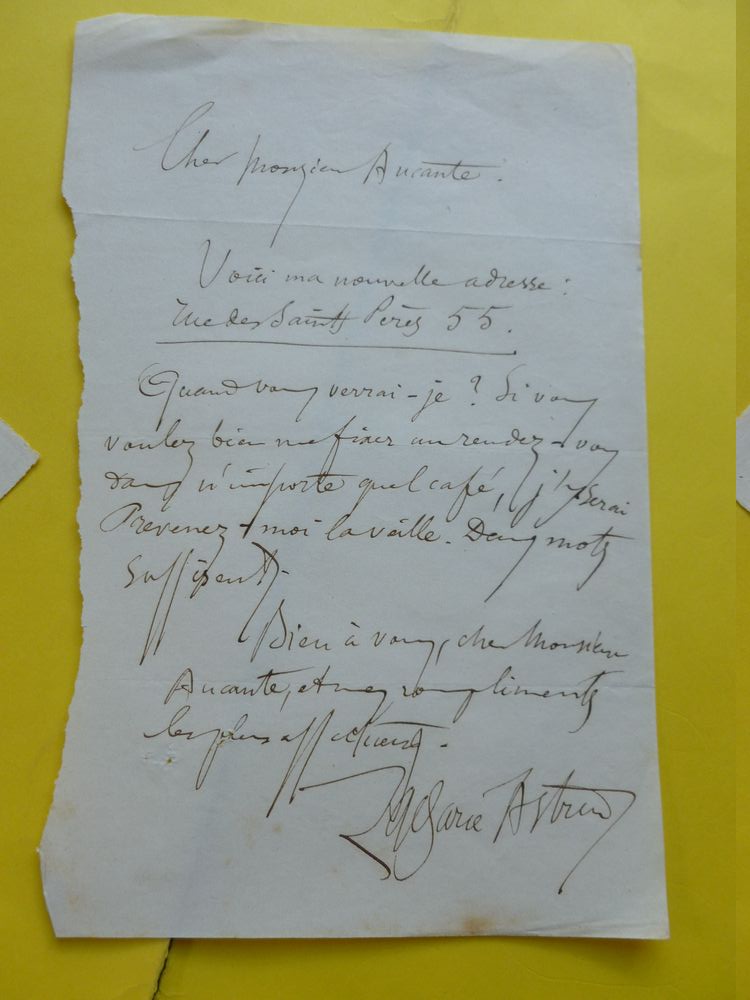 Cher Monsieur Aucante :
Voici ma nouvelle adresse :
Rue des Saints Pères 55.
Quand vous verrai-je ? Si vous
voulez bien me fixer un rendez-vous
dans n'importe quel café, j'y serai
Prevenez-moi la veille. Deux mots
suffisent.
Bien à vous, cher Monsieur
Aucante, et mes compliments
les plus affectueux.
Marie Astrud